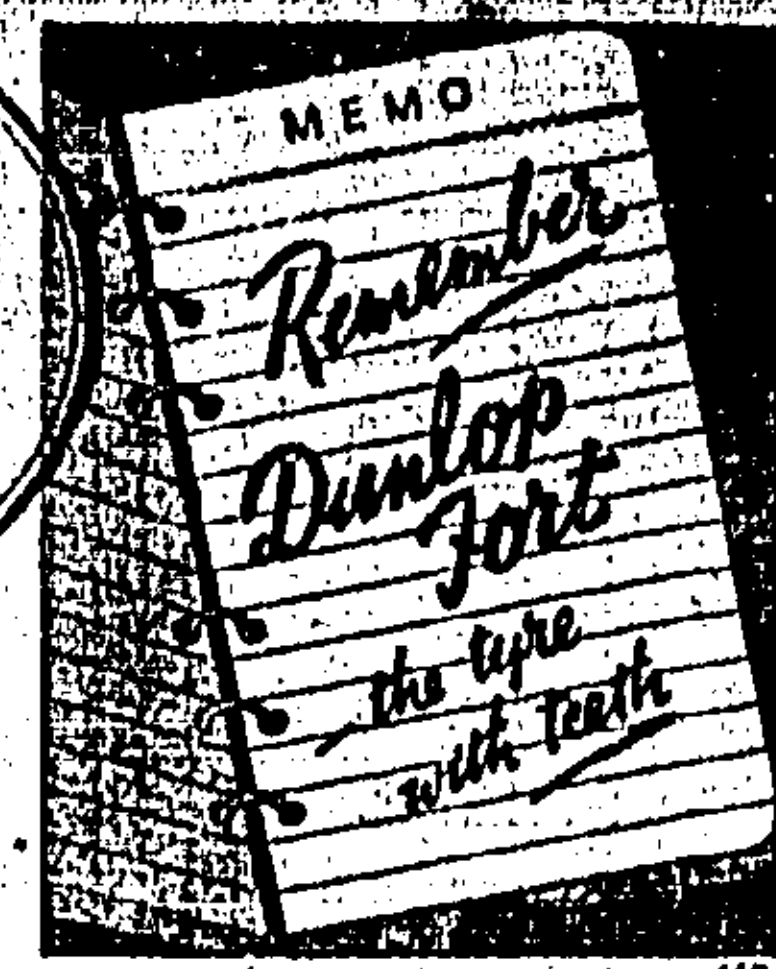 MEMO
Remember
Dunlop
Fort
the tyre
with teeth